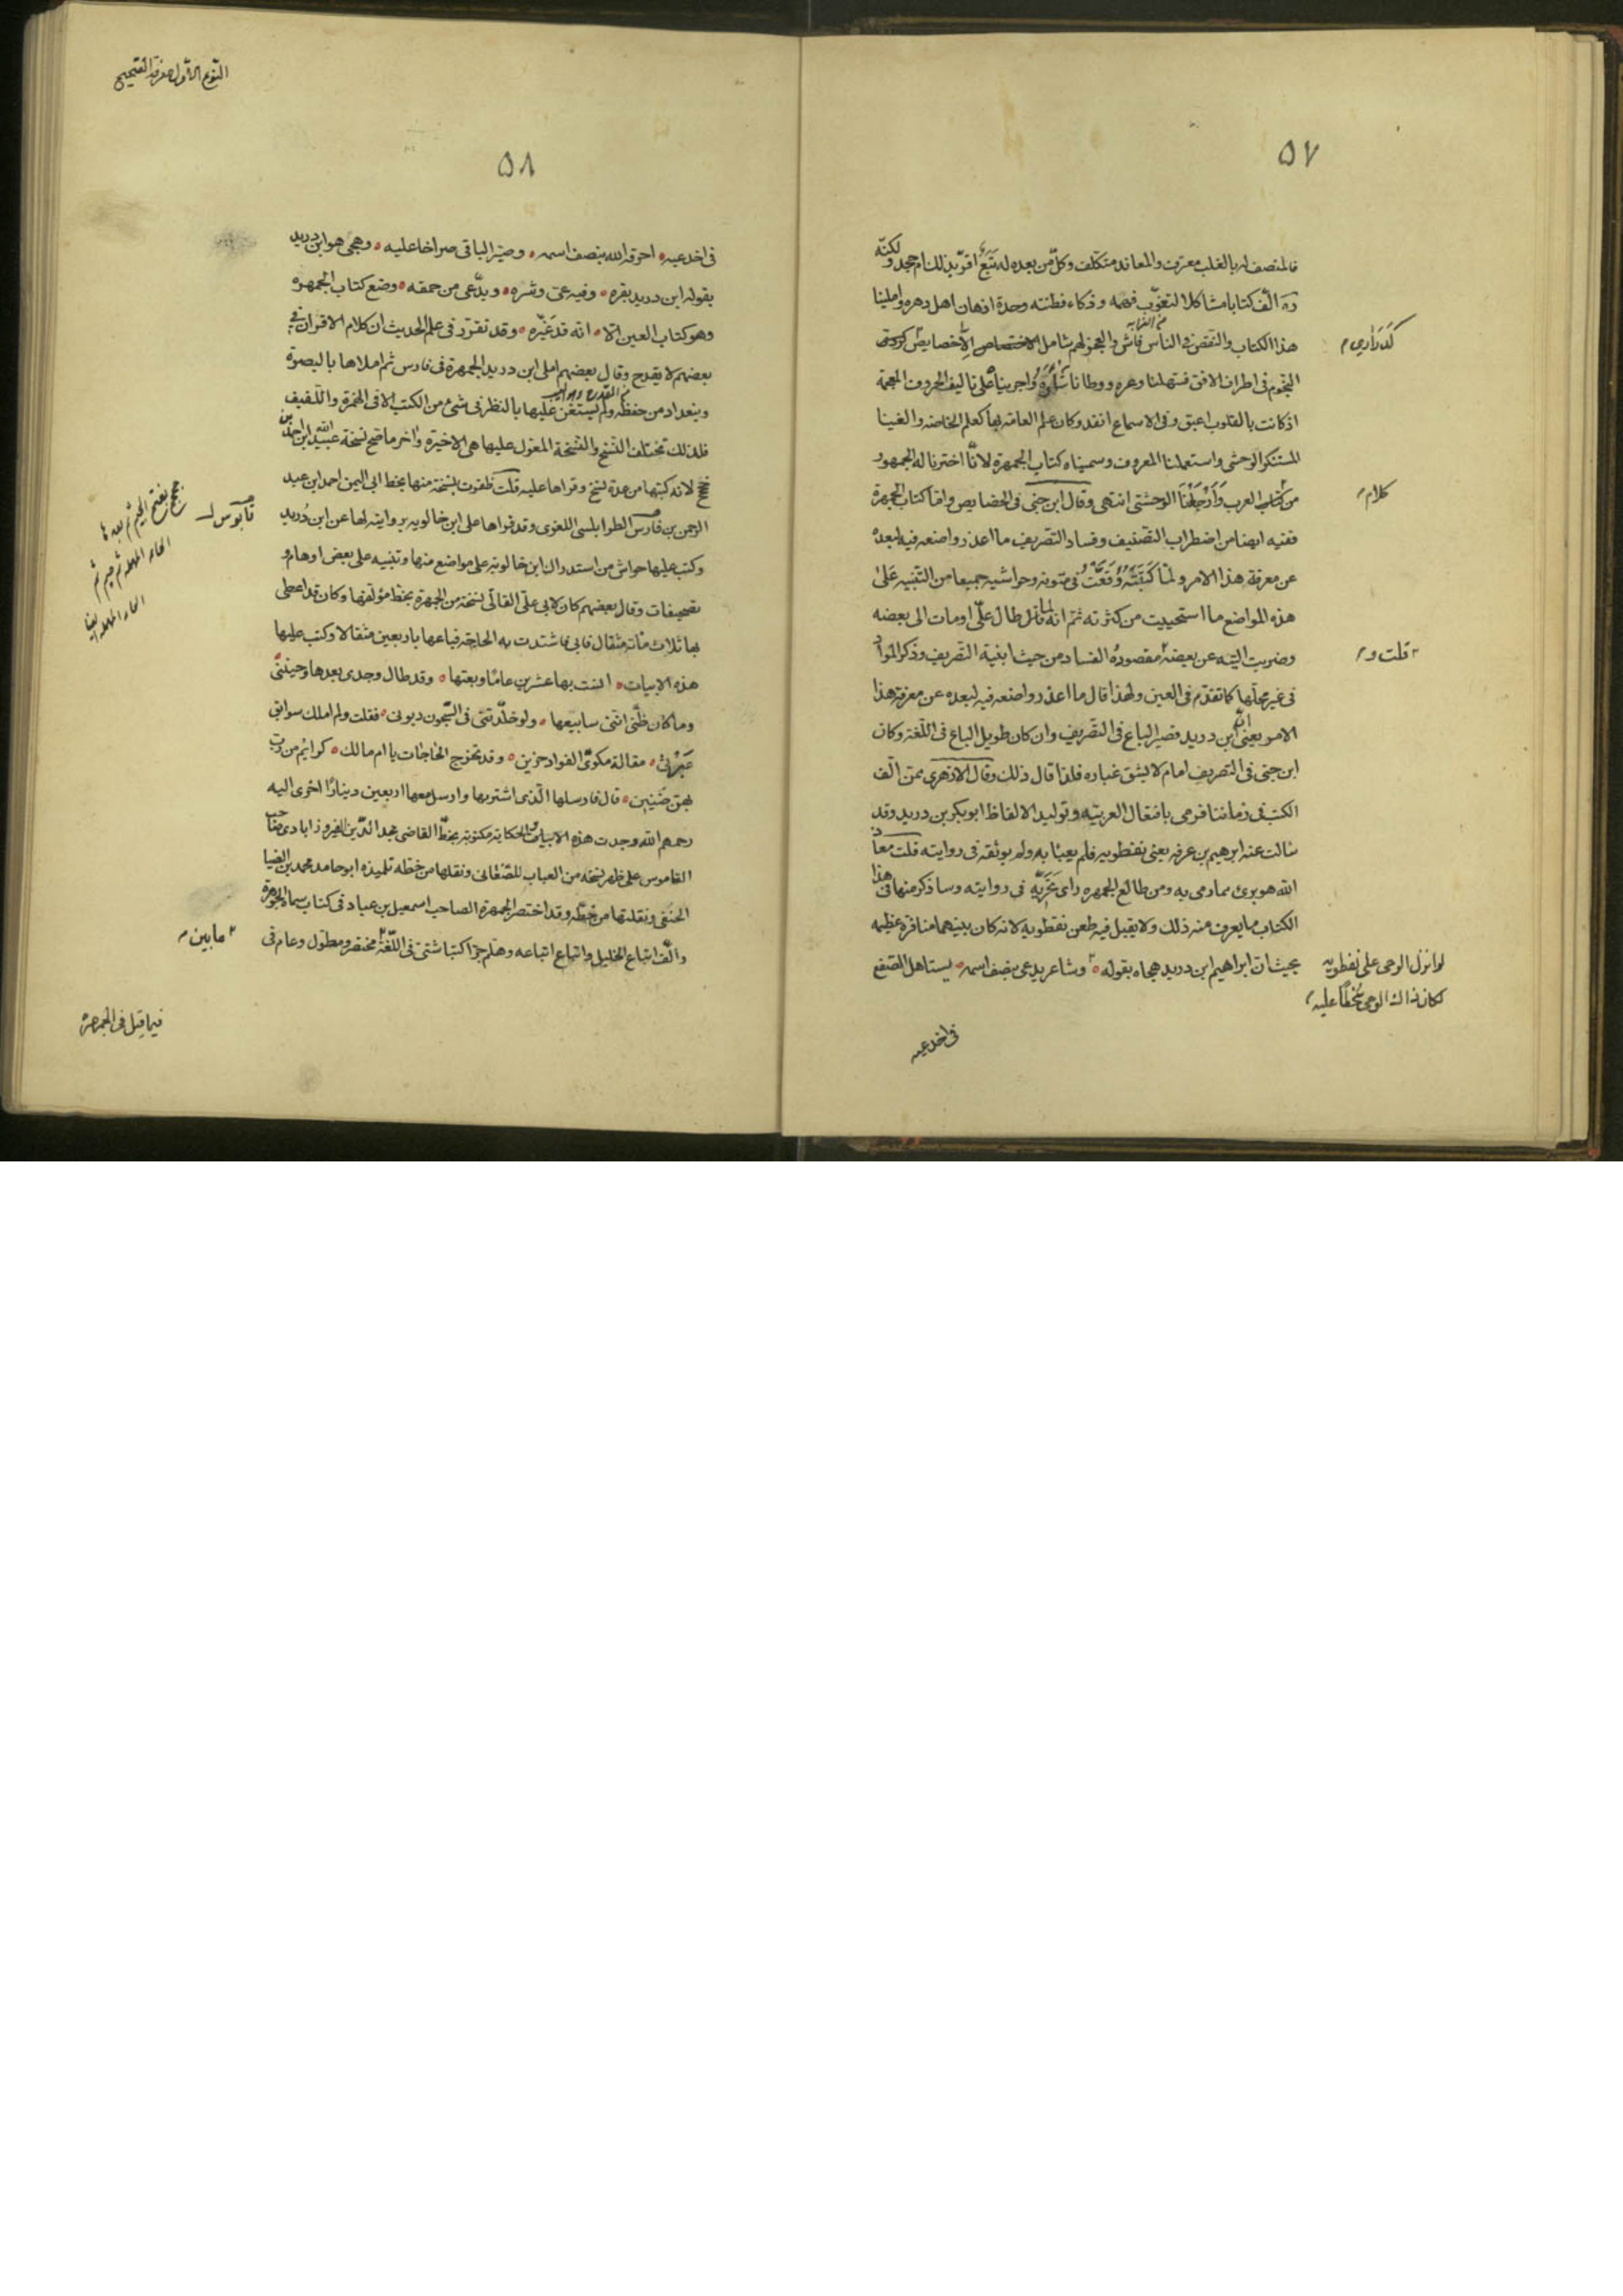 ٥٧
فالمنصف له بالغلب معترف والمعاند متكلف وكل من بعده له تبع اقر بذلك ام جحد ولكنه
ره الف كتابا مشاكلا لثقوب فهمه وذكاء فطنته وحدة اذهان اهل دهره واملينا
هذا الكتاب والنقص في الناس فاش والعجز لهم شامل الا خصايص
كدراري
النجوم في اطراف الافق فسهلنا وعره ووطانا شازه واجريناه على تاليف الحروف المعجمة
اذ كانت بالقلوب اعبق وفي الاسماع انفد وكان علم العامه بها كعلم الخاصه والغينا
المستنكر الوحشي واستعملنا المعروف وسميناه كتاب الجمهرة لانا اخترنا له الجمهور
من كلام العرب وارجانا الوحشي انتهى وقال ابن جني في الخصايص واما كتاب الجمهرة
كلام
ففيه ايضا من اضطراب التصنيف وفساد التصريف ما اعذر واضعه فيه لبعده
عن معرفة هذا الامر ولما كتبته وقعت في متونه وحواشيه جميعا من التنبيه على
هذه المواضع ما استحييت من كثرته ثم انه لما طال علي اومات الى بعضه
وضربت البته عن بعضه مقصوده الفساد من حيث ابنية التصريف وذكر المواد
قلت و
في غير محلها كما تقدم في العين ولهذا قال ما اعذر واضعه فيه لبعده عن معرفة هذا
الامر يعني ان ابن دريد قصير الباع في التصريف وان كان طويل الباع في اللغة وكان
ابن جني في التصريف امام لا يشق غباره فلذا قال ذلك وقال الازهري ممن الف
الكتب في زماننا فرمي بافتعال العربيه وتوليد الالفاظ ابو بكر بن دريد وقد
سالت عنه ابرهيم بن عرفه يعني نفطويه فلم يعبا به ولم يوثقه في روايته قلت معاذ
الله هو برئ مما رمي به ومن طالع الجمهره راى تحريه في روايته وساذكر منها في هذا
الكتاب ما يعرف منه ذلك ولا يقبل فيه طعن نفطويه لانه كان بينهما منافرة عظيمه
بحيث ان ابراهيم ابن دريد هجاه بقوله وشاعر يدعى بنصف اسمه يستاهل الصفع
لو انزل الوحي على نفطويه
لكان ذاك الوحي سخطا عليه
في اخدعيه
النوع الاول معرفة الصحيح
٥٨
في اخدعيه احرقه الله بنصف اسمه وصير الباقي صراخا عليه وهجى هو ابن دريد
بقوله ابن دريد بقره وفيه عي وشره ويدعي من حمقه وضع كتاب الجمهره
وهو كتاب العين الا انه قد غيره وقد تقرر في علم الحديث ان كلام الاقران في
بعضهم لا يقدح وقال بعضهم املى ابن دريد الجمهرة في فارس ثم املاها بالبصرة
وببغداد من حفظه ولم يستعن عليها بالنظر في شئ من الكتب الا في الهمزة واللفيف
فلذلك تختلف النسخ والنسخة المعول عليها هي الاخيرة واخر ما صح نسخة عبيد الله ابن احمد بن
جخجخ لانه كتبها من عدة نسخ وقراها عليه قلت ظفرت بنسخة منها بخط ابي اليمن احمد ابن عبد
الرحمن بن قابوس الطرابلسي اللغوي وقد قراها على ابن خالويه بروايته لها عن ابن دريد
قابوس
وكتب عليها حواش من استدراك ابن خالويه على مواضع منها وتنبيه على بعض اوهام و
تصحيفات وقال بعضهم كان لابي علي القالي نسخة من الجمهرة بخط مؤلفها وكان قد اعطي
بها ثلاث مائة مثقال فابى فاشتدت به الحاجة فباعها باربعين مثقالا وكتب عليها
هذه الابيات انست بها عشرين عاما وبعتها وقد طال وجدي بعدها وحنيني
وما كان ظني انني سابيعها ولو خلدتني في السجون ديوني فقلت ولم املك سوابق
عبرتي مقالة مكوي الفواد حزين وقد تخرج الحاجات يا ام مالك كرايم من رب
بهن ضنين قال فارسلها الذي اشتريها وارسل معها اربعين دينارا اخرى اليه
رحمهم الله وجدت هذه الابيات والحكاية مكتوبة بخط القاضي مجد الدين الفيروزابادي صاحب
القاموس على ظهر نسخه من العباب للصغاني ونقلها من خطه تلميذه ابو حامد محمد بن الضيا
الحنفي ونقلتها من خطه وقد اختصر الجمهرة الصاحب اسمعيل بن عباد في كتاب سماه الجوهرة
والف اتباع الخليل واتباع اتباعه وهلم جرا كتبا شتى في اللغة مختصر ومطول وعام في
ما بين
فيما قيل في الجمهرة